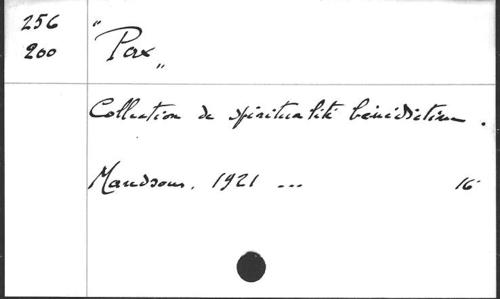 256
200
"Pax"
Collection de spiritualité bénédictine.
Maredsous. 1921 ... 16